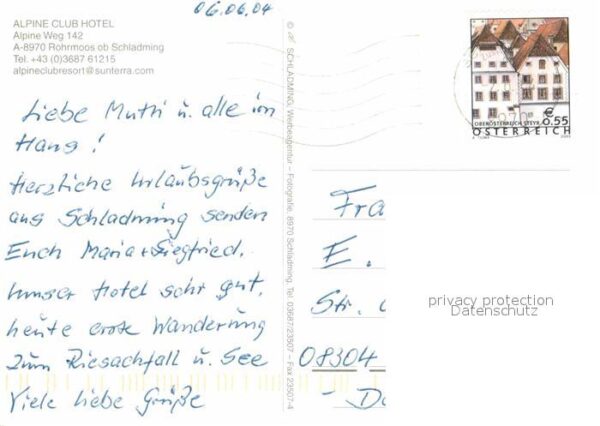 06.06.04
ALPINE CLUB HOTEL
Alpine Weg 142
A-8970 Rohrmoos ob Schladming
Tel. +43 (0)3687 61215
alpineclubresort@sunterra.com
Liebe Mutti u. alle im
Haus!
Herzliche Urlaubsgrüße
aus Schladming senden
Euch Maria + Siegfried.
Unser Hotel sehr gut,
heute erste Wanderung
zum Riesachfall u. See
Viele liebe Grüße
© SCHLADMING, Werbeagentur - Fotografie, 8970 Schladming, Tel. 03687/23507 - Fax 23507-4
OBERÖSTERREICH STEYR
€ 0.55
ÖSTERREICH
Fra
E.
Str.
08304
privacy protection
Datenschutz